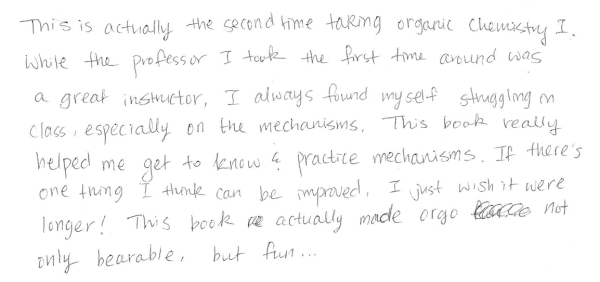 This is actually the second time taking organic Chemistry I.
While the professor I took the first time around was
a great instructor, I always found myself struggling in
class, especially on the mechanisms. This book really
helped me get to know & practice mechanisms. If there's
one thing I think can be improved, I just wish it were
longer! This book actually made orgo not
only bearable, but fun...